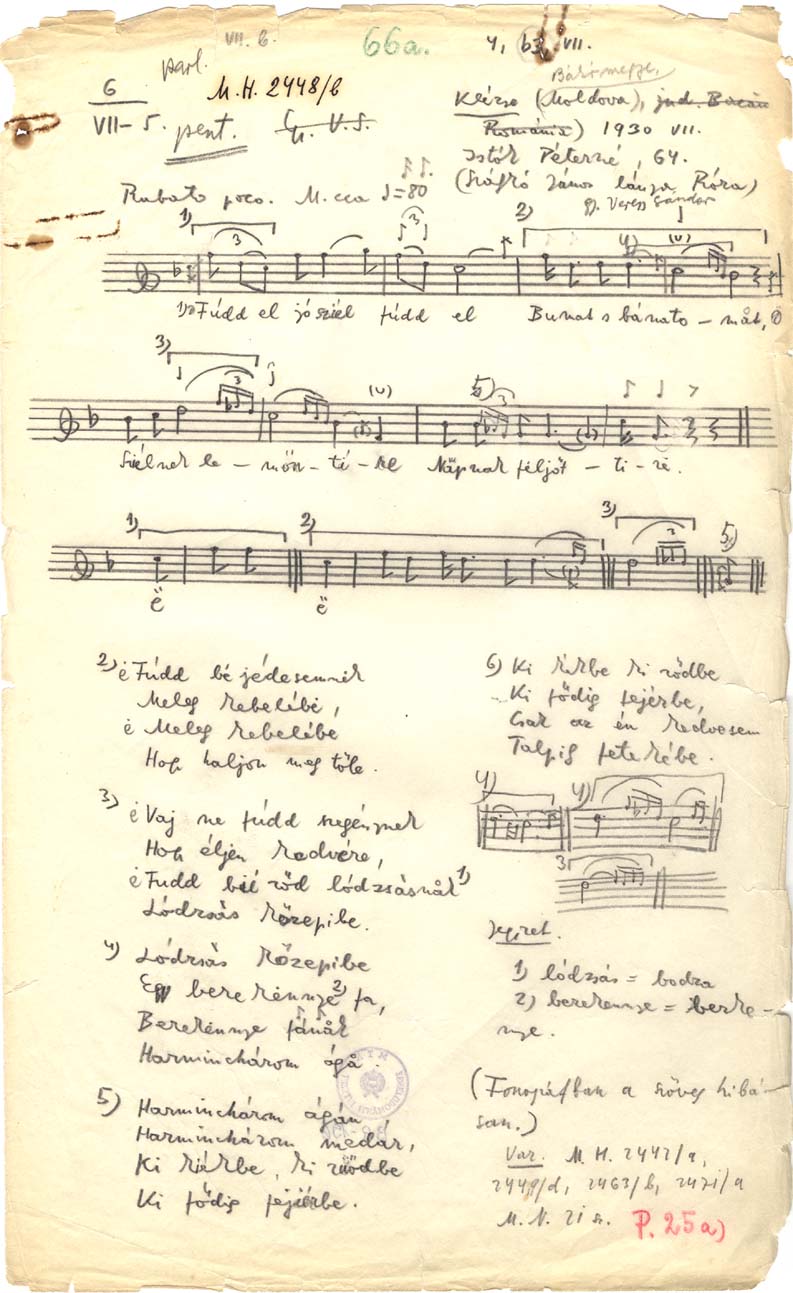 VII. b. 66a. 4, b3, VII.
parl.
6 M.H. 2448/b
VII-5. pent.
Klézse (Moldova), jud. Bacău
România) 1930 VII.
Istók Péterné, 64.
(Száfró János lánya, Róra)
gy. Veress Sándor
Rubato poco. M. cca ♩=80
1) 3 3 2) 4) (∪)
1) Fúdd el jó szél fúdd el Bunat s bánato - måt,
3) 3 (∪) 5)
Szélnek le - mön - ti - Näpnak féljöt - ti - re.
1) 2) 3) 5)
ë ë
2) ė Fúdd bé jédesemnek
Meleg kebelébe,
ė Meleg kebelébe
Hogy haljon meg tőle.
3) ė Vaj ne fúdd szegénynek
Hogy éljen kedvére,
ė Fudd bé zöd lódzsásnåk 1)
Lódzsás közepibe.
4) Lódzsås közepibe
Egy berekënnye 2) fa,
Berekënnye fånåk
Harminchárom ågå.
5) Harminchårom ågån
Harminchárom madár,
Ki kékbe, ki zödbe
Ki födig fejérbe.
6) Ki kékbe ki ződbe
Ki födig fejérbe,
Csak az én kedvesem
Talpig feketébe.
4) 4)
3
Jegyzet.
1) lódzsás = bodza
2) berekennye = berke-
nye.
(Fonográfban a szöveg hibá-
san.)
Var. M.H. 2442/a,
2449/d, 2463/b, 2471/a
M.N. 21 sz. P. 25a)